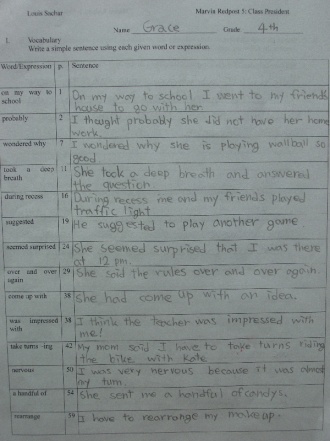 Louis Sachar Marvin Redpost 5: Class President
Name Grace Grade 4th
I. Vocabulary
Write a simple sentence using each given word or expression.
Word/Expression p. Sentence
on my way to school 1 On my way to school I went to my friends
house to go with her
probably 2 I thought probably she did not have her home
work.
wondered why 7 I wondered why she is playing wallball so
good
took a deep breath 11 She took a deep breath and answered
the question
during recess 16 During recess me and my friends played
traffic light
suggested 19 He suggested to play another game
seemed surprised 24 She seemed surprised that I was there
at 12 pm.
over and over again 29 She said the rules over and over again.
come up with 38 She had come up with an idea.
was impressed with 38 I think the teacher was impressed with
me!
take turns -ing 42 My mom said I have to take turns riding
the bike with Kate
nervous 50 I was very nervous because it was almost
my turn
a handful of 54 She sent me a handful of candys.
rearrange 59 I have to rearrange my makeup.